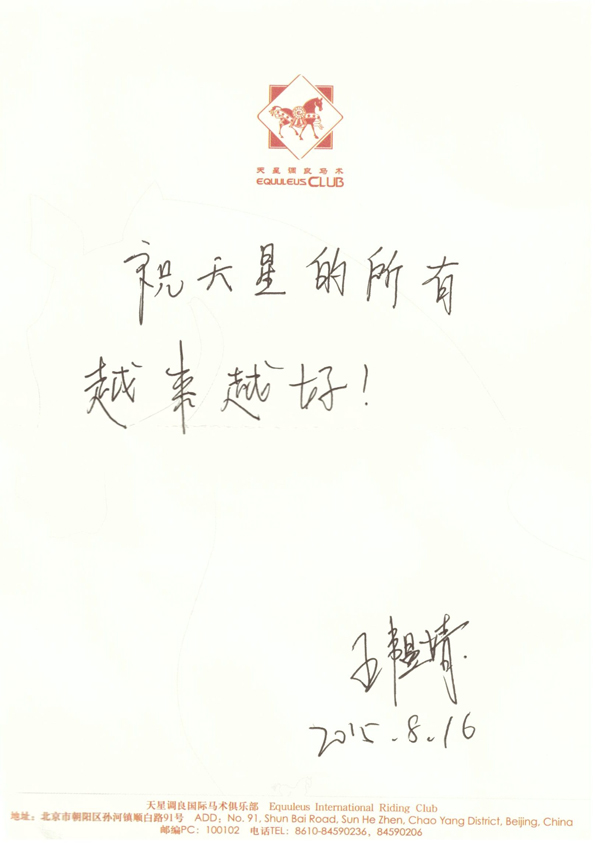 天星调良马术
EQUULEUS CLUB
祝天星的所有
越来越好!
2015.8.16
天星调良国际马术俱乐部 Equuleus International Riding Club
地址:北京市朝阳区孙河镇顺白路91号 ADD: No. 91, Shun Bai Road, Sun He Zhen, Chao Yang District, Beijing, China
邮编PC: 100102 电话TEL: 8610-84590236, 84590206